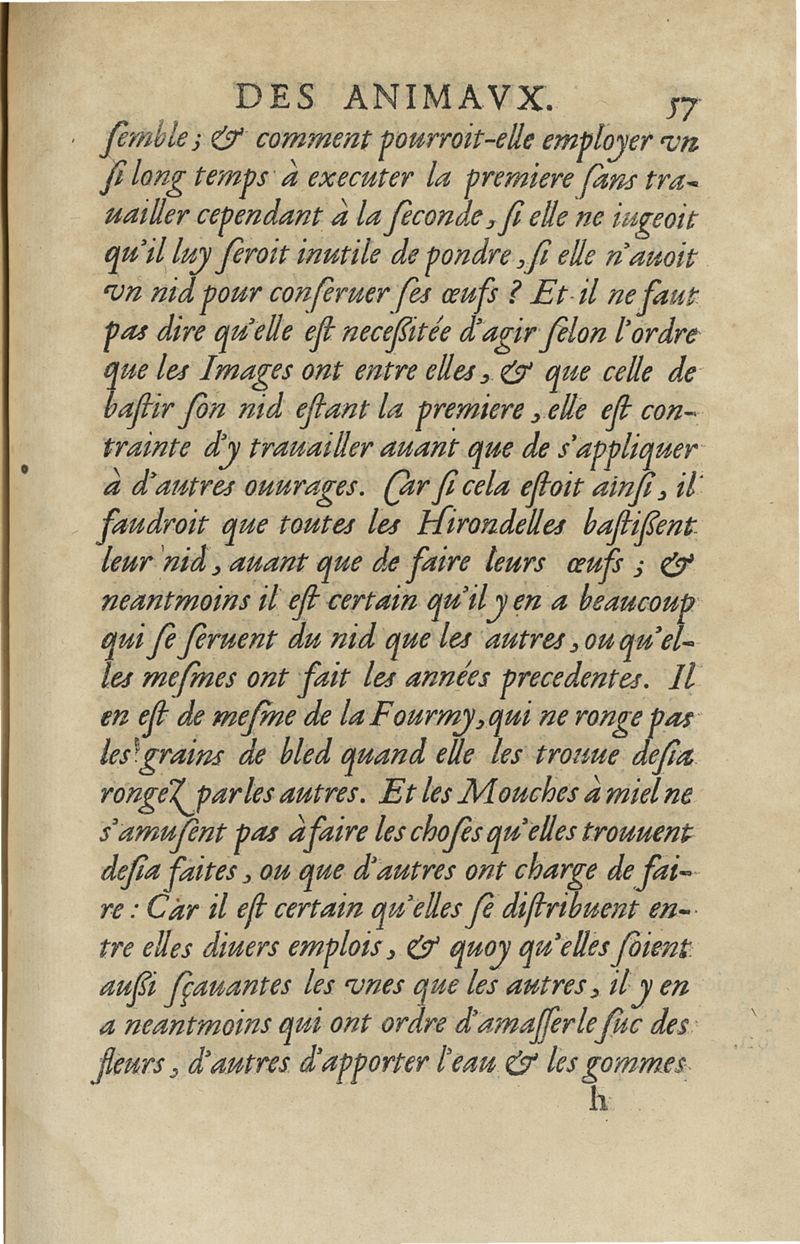 DES ANIMAVX. 57
ſemble; & comment pourroit-elle employer vn
ſi long temps à executer la premiere ſans tra-
uailler cependant à la ſeconde, ſi elle ne iugeoit
qu'il luy ſeroit inutile de pondre, ſi elle n'auoit
vn nid pour conſeruer ſes œufs ? Et il ne faut
pas dire qu'elle eſt neceſſitée d'agir ſelon l'ordre
que les Images ont entre elles, & que celle de
baſtir ſon nid eſtant la premiere, elle eſt con-
trainte d'y trauailler auant que de s'appliquer
à d'autres ouurages. Car ſi cela eſtoit ainſi, il
faudroit que toutes les Hirondelles baſtiſſent
leur nid, auant que de faire leurs œufs ; &
neantmoins il eſt certain qu'il y en a beaucoup
qui ſe ſeruent du nid que les autres, ou qu'el-
les meſmes ont fait les années precedentes. Il
en eſt de meſme de la Fourmy, qui ne ronge pas
les grains de bled quand elle les trouue deſia
rongez par les autres. Et les Mouches à miel ne
s'amuſent pas à faire les choſes qu'elles trouuent
deſia faites, ou que d'autres ont charge de fai-
re : Car il eſt certain qu'elles ſe diſtribuent en-
tre elles diuers emplois, & quoy qu'elles ſoient
auſſi ſçauantes les vnes que les autres, il y en
a neantmoins qui ont ordre d'amaſſer le ſuc des
fleurs, d'autres d'apporter l'eau & les gommes
h